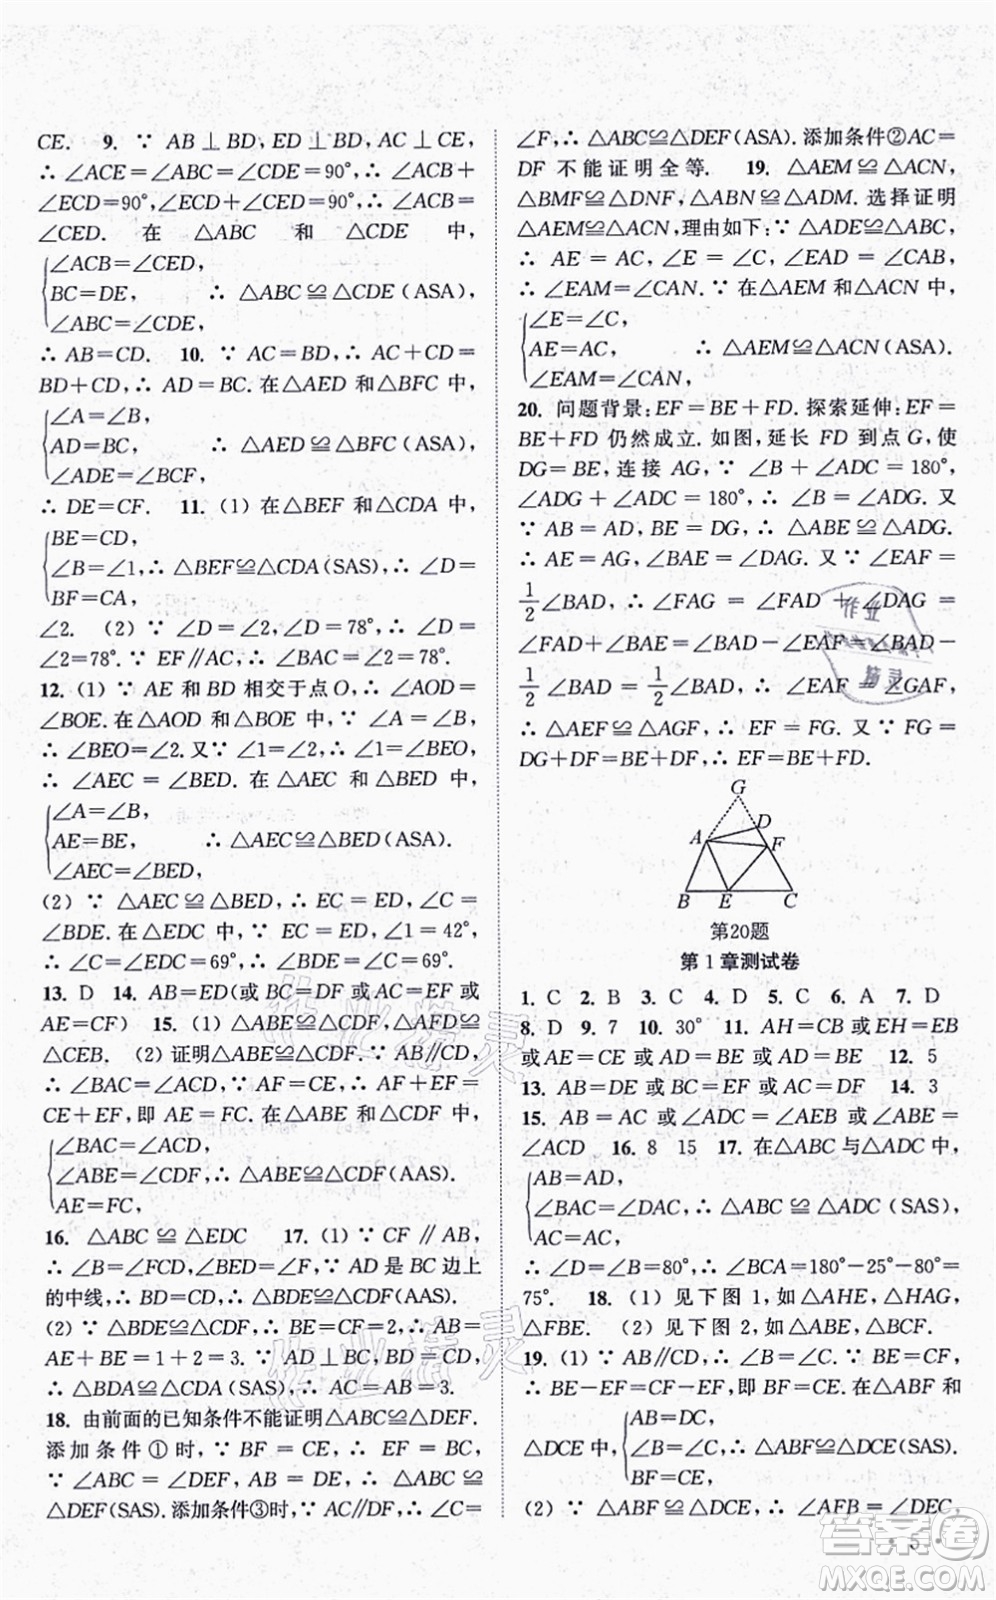 CE. 9. ∵ AB⊥BD,ED⊥BD,AC⊥CE,
∴ ∠ACE=∠ABC=∠CDE=90°,∴ ∠ACB+
∠ECD=90°,∠ECD+∠CED=90°,∴ ∠ACB=
∠CED. 在 △ABC 和 △CDE 中,
∠ACB=∠CED,
BC=DE, ∴ △ABC≌△CDE(ASA),
∠ABC=∠CDE,
∴ AB=CD. 10. ∵ AC=BD,∴ AC+CD=
BD+CD,∴ AD=BC. 在△AED 和△BFC 中,
∠A=∠B,
AD=BC, ∴ △AED≌△BFC(ASA),
∠ADE=∠BCF,
∴ DE=CF. 11. (1) 在△BEF 和△CDA 中,
BE=CD,
∠B=∠1,∴ △BEF≌△CDA(SAS),∴ ∠D=
BF=CA,
∠2. (2) ∵ ∠D=∠2,∠D=78°,∴ ∠D=
∠2=78°. ∵ EF∥AC,∴ ∠BAC=∠2=78°.
12. (1) ∵ AE 和 BD 相交于点 O,∴ ∠AOD=
∠BOE. 在△AOD 和△BOE 中,∵ ∠A=∠B,
∴ ∠BEO=∠2. 又∵ ∠1=∠2,∴ ∠1=∠BEO,
∴ ∠AEC=∠BED. 在 △AEC 和 △BED 中,
∠A=∠B,
AE=BE, ∴ △AEC≌△BED(ASA).
∠AEC=∠BED,
(2) ∵ △AEC≌△BED,∴ EC=ED,∠C=
∠BDE. 在△EDC 中,∵ EC=ED,∠1=42°,
∴ ∠C=∠EDC=69°,∴ ∠BDE=∠C=69°.
13. D 14. AB=ED(或 BC=DF 或 AC=EF 或
AE=CF) 15. (1) △ABE≌△CDF,△AFD≌
△CEB. (2) 证明△ABE≌△CDF. ∵ AB∥CD,
∴ ∠BAC=∠ACD. ∵ AF=CE,∴ AF+EF=
CE+EF,即 AE=FC. 在△ABE 和△CDF 中,
∠BAC=∠ACD,
∠ABE=∠CDF,∴ △ABE≌△CDF(AAS).
AE=FC,
16. △ABC≌△EDC 17. (1) ∵ CF∥AB,
∴ ∠B=∠FCD,∠BED=∠F. ∵ AD 是 BC 边上
的中线,∴ BD=CD,∴ △BDE≌△CDF(AAS).
(2) ∵ △BDE≌△CDF,∴ BE=CF=2,∴ AB=
AE+BE=1+2=3. ∵ AD⊥BC,BD=CD,
∴ △BDA≌△CDA(SAS),∴ AC=AB=3.
18. 由前面的已知条件不能证明△ABC≌△DEF.
添加条件①时,∵ BF=CE,∴ EF=BC.
∵ ∠ABC=∠DEF,AB=DE,∴ △ABC≌
△DEF(SAS). 添加条件③时,∵ AC∥DF,∴ ∠C=
∠F,∴ △ABC≌△DEF(ASA). 添加条件②AC=
DF 不能证明全等. 19. △AEM≌△ACN,
△BMF≌△DNF,△ABN≌△ADM. 选择证明
△AEM≌△ACN,理由如下:∵ △ADE≌△ABC,
∴ AE=AC,∠E=∠C,∠EAD=∠CAB,
∴ ∠EAM=∠CAN. ∵ 在△AEM 和△ACN 中,
∠E=∠C,
AE=AC, ∴ △AEM≌△ACN(ASA).
∠EAM=∠CAN,
20. 问题背景:EF=BE+FD. 探索延伸:EF=
BE+FD 仍然成立. 如图,延长 FD 到点 G,使
DG=BE,连接 AG,∵ ∠B+∠ADC=180°,
∠ADG+∠ADC=180°,∴ ∠B=∠ADG. 又
∵ AB=AD,BE=DG,∴ △ABE≌△ADG.
∴ AE=AG,∠BAE=∠DAG. 又∵ ∠EAF=
1/2∠BAD,∴ ∠FAG=∠FAD+∠DAG=
∠FAD+∠BAE=∠BAD-∠EAF=∠BAD-
1/2∠BAD=1/2∠BAD,∴ ∠EAF=∠GAF,
∴ △AEF≌△AGF,∴ EF=FG. 又∵ FG=
DG+DF=BE+DF,∴ EF=BE+FD.
G
D
A
F
B E C
第20题
第1章测试卷
1. C 2. B 3. C 4. D 5. C 6. A 7. D
8. D 9. 7 10. 30° 11. AH=CB 或 EH=EB
或 AE=CE 或 AD=BD 或 AD=BE 12. 5
13. AB=DE 或 BC=EF 或 AC=DF 14. 3
15. AB=AC 或∠ADC=∠AEB 或∠ABE=
∠ACD 16. 8 15 17. 在△ABC 与△ADC 中,
AB=AD,
∠BAC=∠DAC,∴ △ABC≌△ADC(SAS),
AC=AC,
∴ ∠D=∠B=80°,∴ ∠BCA=180°-25°-80°=
75°. 18. (1) 见下图 1,如△AHE,△HAG,
△FBE. (2) 见下图 2,如△ABF,△ACF.
19. (1) ∵ AB∥CD,∴ ∠B=∠C. ∵ BE=CF,
∴ BE-EF=CF-EF,即 BF=CE. 在△ABF 和
AB=DC,
△DCE 中,∠B=∠C,∴ △ABF≌△DCE(SAS).
BF=CE,
(2) ∵ △ABF≌△DCE,∴ ∠AFB=∠DEC,
· 5 ·
作业精灵
作业精灵
作业
精灵
答案圈
MXQE.COM